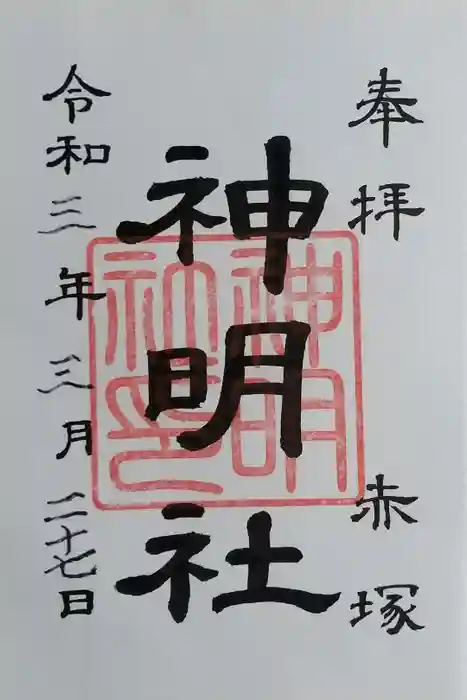 奉拝　赤塚
神明社
神明社印
令和三年三月二十七日